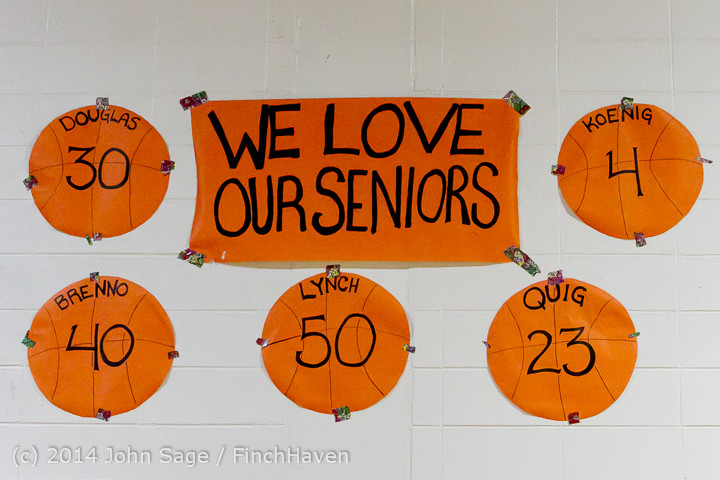 DOUGLAS
30
WE LOVE
OUR SENIORS
KOENIG
4
BRENNO
40
LYNCH
50
QUIG
23
(c) 2014 John Sage / FinchHaven